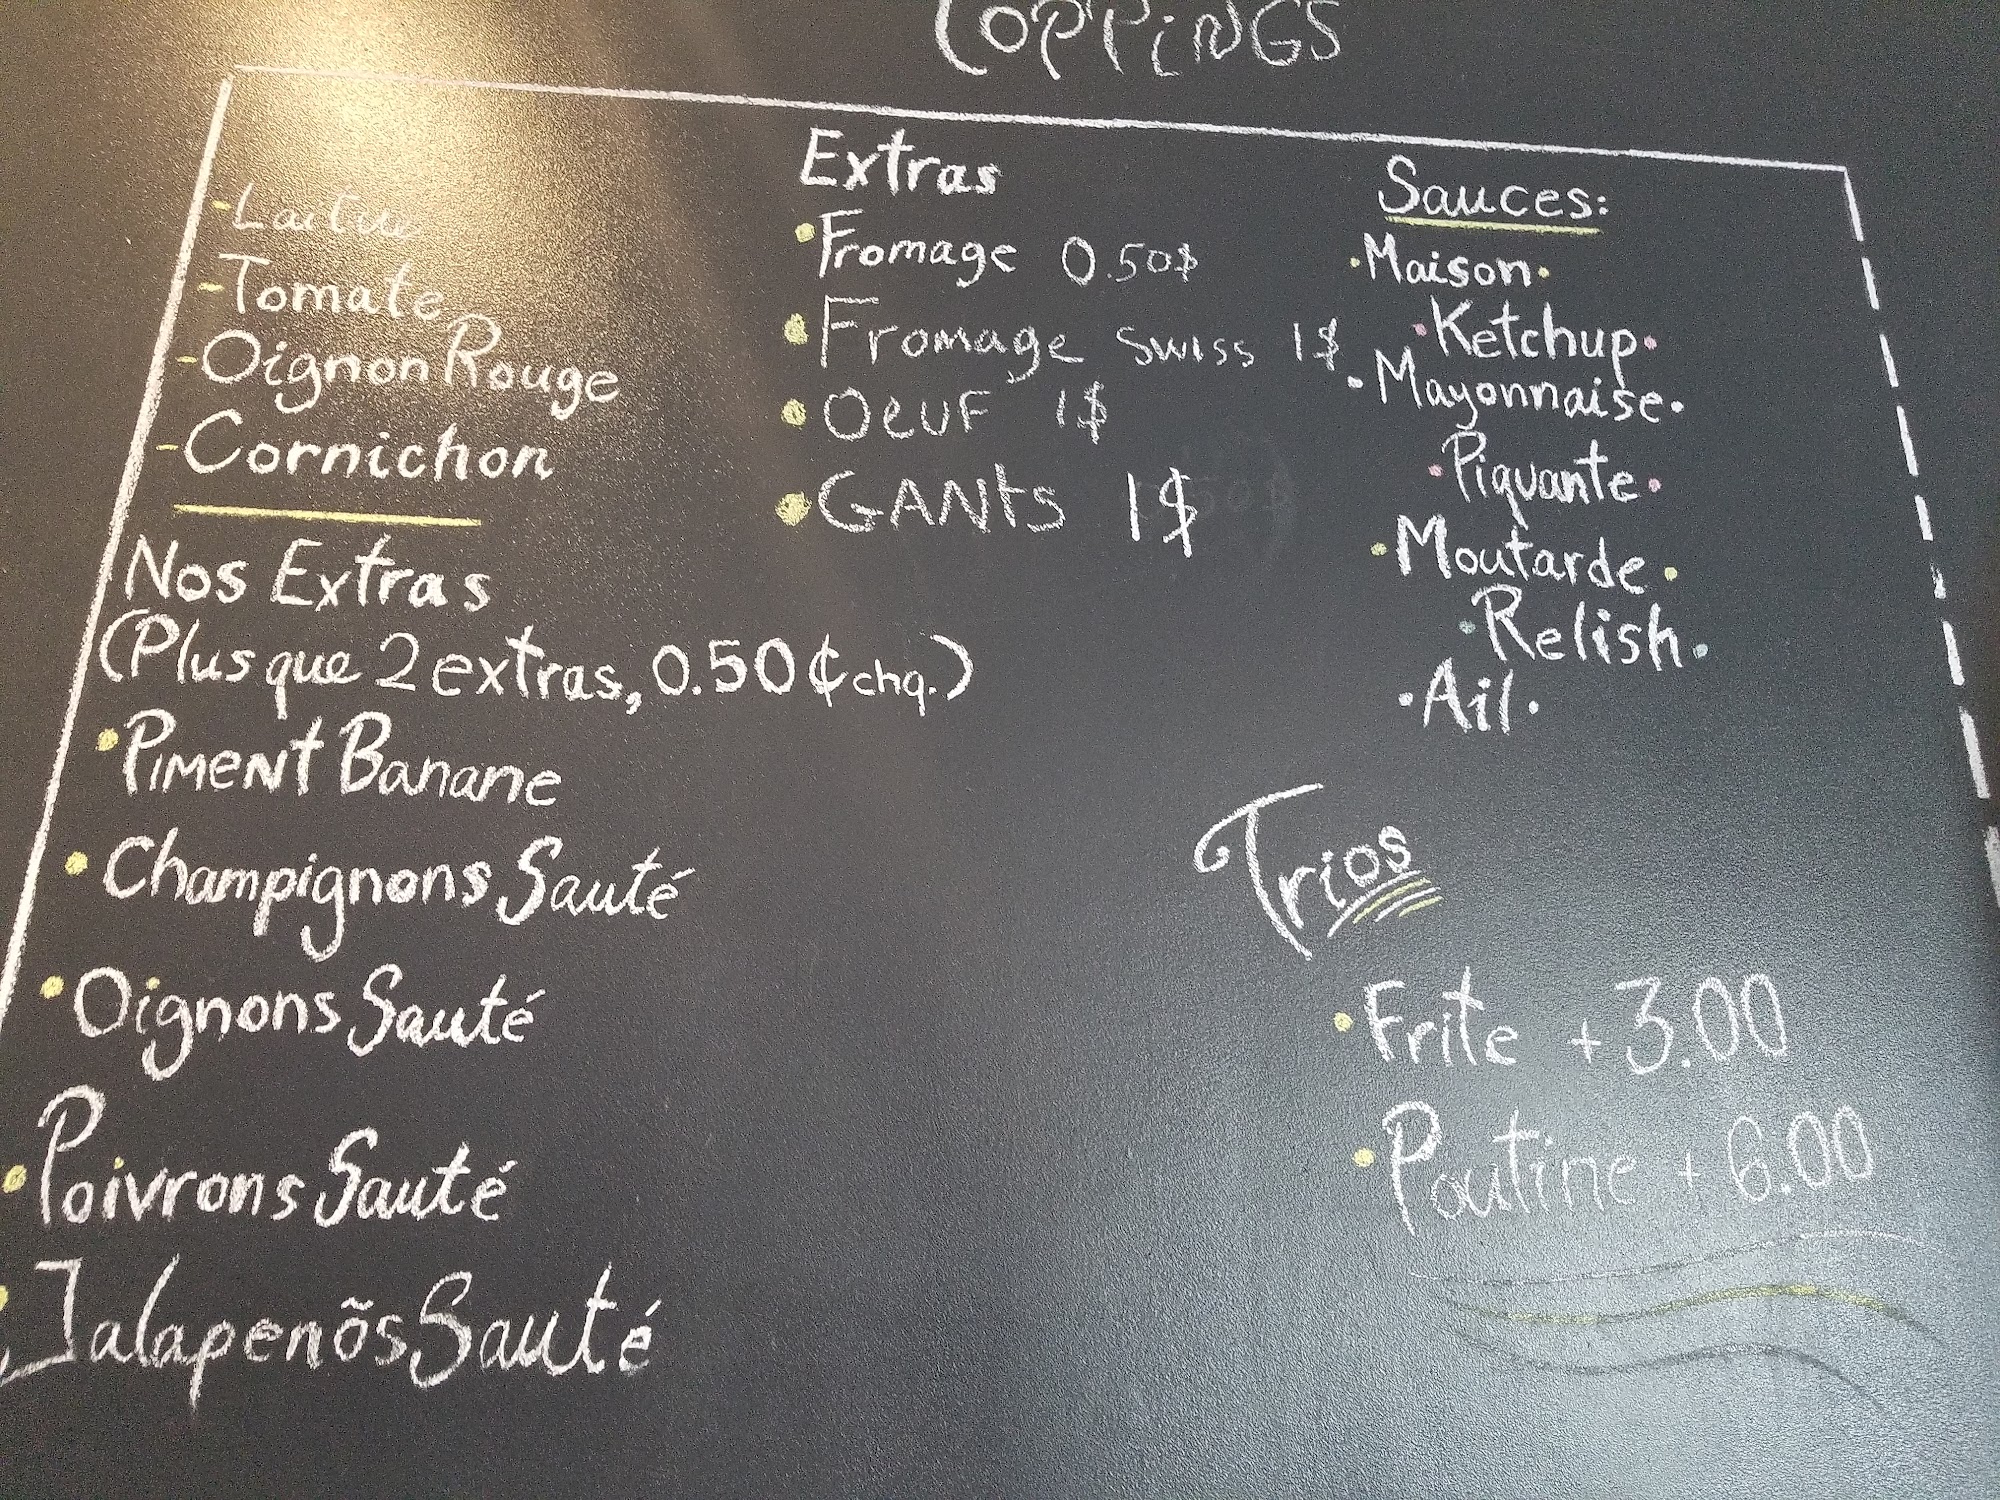 TOPPINGS
- Laitue
- Tomate
- Oignon Rouge
- Cornichon
Nos Extras
(Plus que 2 extras, 0.50¢ chq.)
• Piment Banane
• Champignons Sauté
• Oignons Sauté
• Poivrons Sauté
• Jalapenõs Sauté
Extras
• Fromage 0.50$
• Fromage swiss 1$
• Oeuf 1$
• GANts 1$
Sauces:
• Maison •
• Ketchup •
• Mayonnaise •
• Piquante •
• Moutarde •
• Relish •
• Ail •
Trios
• Frite + 3.00
• Poutine + 6.00